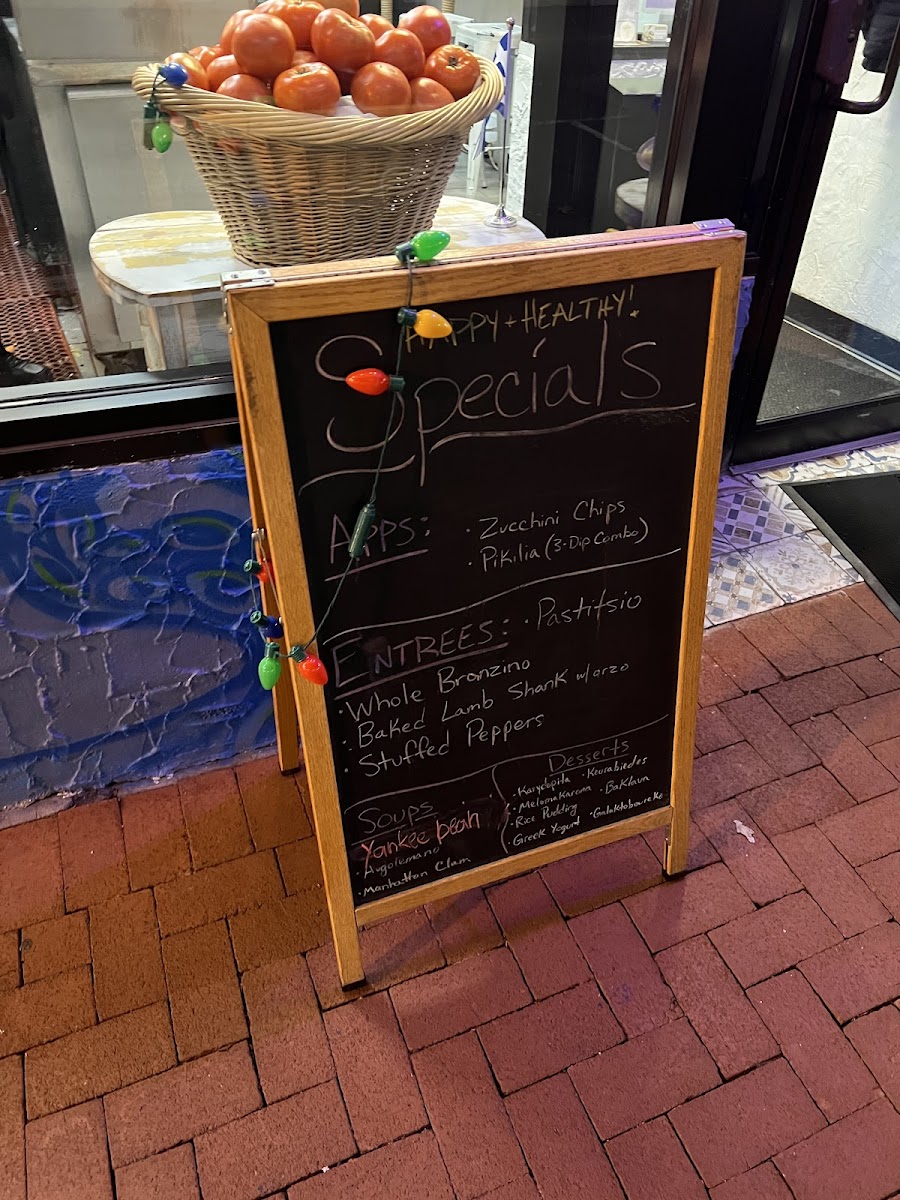 HAPPY + HEALTHY!
Specials
APPS:
· Zucchini Chips
· Pikilia (3-Dip Combo)
ENTREES: · Pastitsio
· Whole Branzino
· Baked Lamb Shank w/ orzo
· Stuffed Peppers
Soups
Yankee bean
· Avgolemano
· Manhattan Clam
Desserts
· Karydopita · Kourabiedes
· Melomakarona · Baklava
· Rice Pudding
· Greek Yogurt · Galaktoboureko